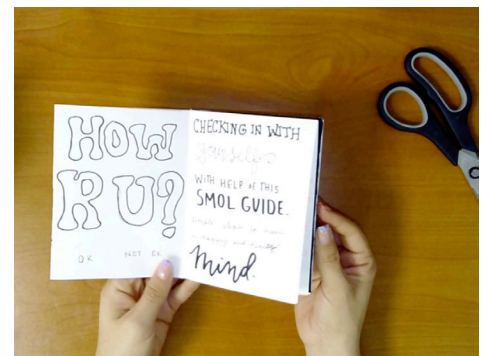 HOW
R U?
OK NOT OK
CHECKING IN WITH
yourself?
WITH HELP OF THIS
SMOL GUIDE.
mind.